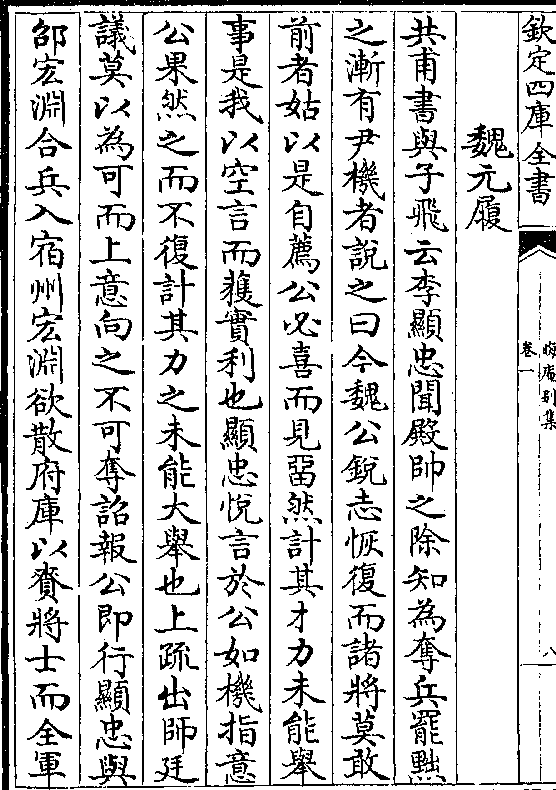 欽定四庫全書
晦庵别集
卷一
八
魏元履
共甫書與子飛云李顯忠聞殿帥之除知為奪兵罷黜
之漸有尹機者說之曰今魏公銳志恢復而諸將莫敢
前者姑以是自薦公必喜而見留然計其才力未能舉
事是我以空言而獲實利也顯忠悅言於公如機指意
公果然之而不復計其力之未能大舉也上疏出師廷
議莫以為可而上意向之不可奪詔報公即行顯忠與
邵宏淵合兵入宿州宏淵欲散府庫以賚將士而全軍